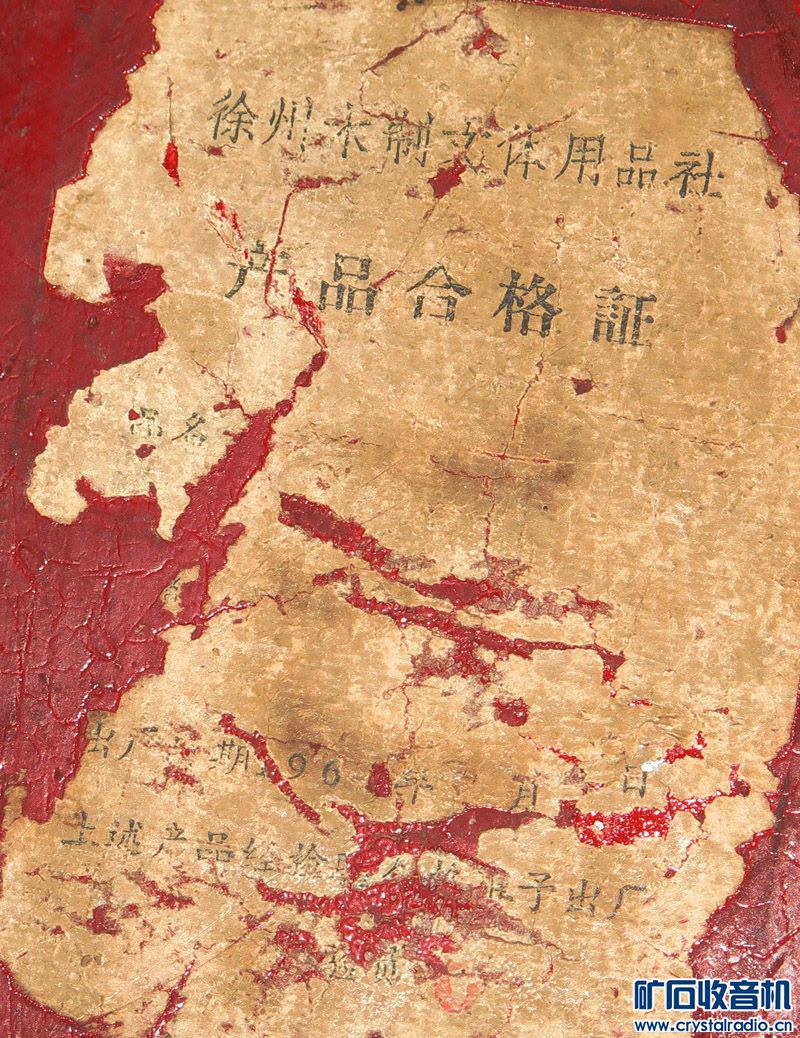 徐州木制文体用品社
产品合格証
品名
出厂 期 196 年 月 日
上述产品经检 合格准予出厂
验员
矿石收音机
www.crystalradio.cn